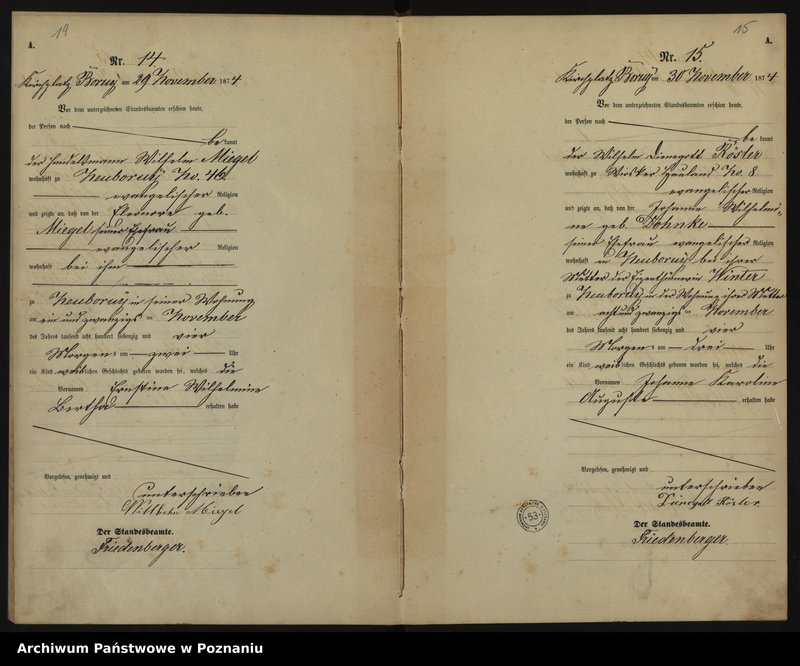 14
A.
Nr. 14.
Kirchplatz Boruÿ am 29 November 1874
Vor dem unterzeichneten Standesbeamten erschien heute,
der Person nach
be kannt
der Handelsmann Wilhelm Miegel
wohnhaft zu Neuboruÿ No. 46
evangelischer Religion
und zeigte an, daß von der Eleonore geb.
Miegel seiner Ehefrau
evangelischer Religion
wohnhaft bei ihm
zu Neuboruÿ in seiner Wohnung
am ein und zwanzigs ten November
des Jahres tausend acht hundert siebenzig und vier
Morgens um zwei Uhr
ein Kind weiblichen Geschlechts geboren worden sei, welches die
Vornamen Ernstine Wilhelmine
Bertha erhalten habe
Vorgelesen, genehmigt und
unterschrieben
Wilhelm Miegel
Der Standesbeamte.
Friedenberger.
15
A.
Nr. 15.
Kirchplatz Boruÿ am 30 November 1874
Vor dem unterzeichneten Standesbeamten erschien heute,
der Person nach
be kannt
der Wilhelm Dienegott Röster
wohnhaft zu Wiosker Hauland No. 8
evangelischer Religion
und zeigte an, daß von der Johanne Wilhelmi-
ne geb. Dohnke
seiner Ehefrau evangelischer Religion
wohnhaft in Neuboruÿ bei ihrer
Mutter der Eigenthümerin Winter
zu Neuboruÿ in der Wohnung ihrer Mutter
am acht und zwanzigs ten November
des Jahres tausend acht hundert siebenzig und vier
Morgens um drei Uhr
ein Kind weiblichen Geschlechts geboren worden sei, welches die
Vornamen Johanne Karoline
Auguste erhalten habe
Vorgelesen, genehmigt und
unterschrieben
Röster
Der Standesbeamte.
Friedenberger.
53
Archiwum Państwowe w Poznaniu